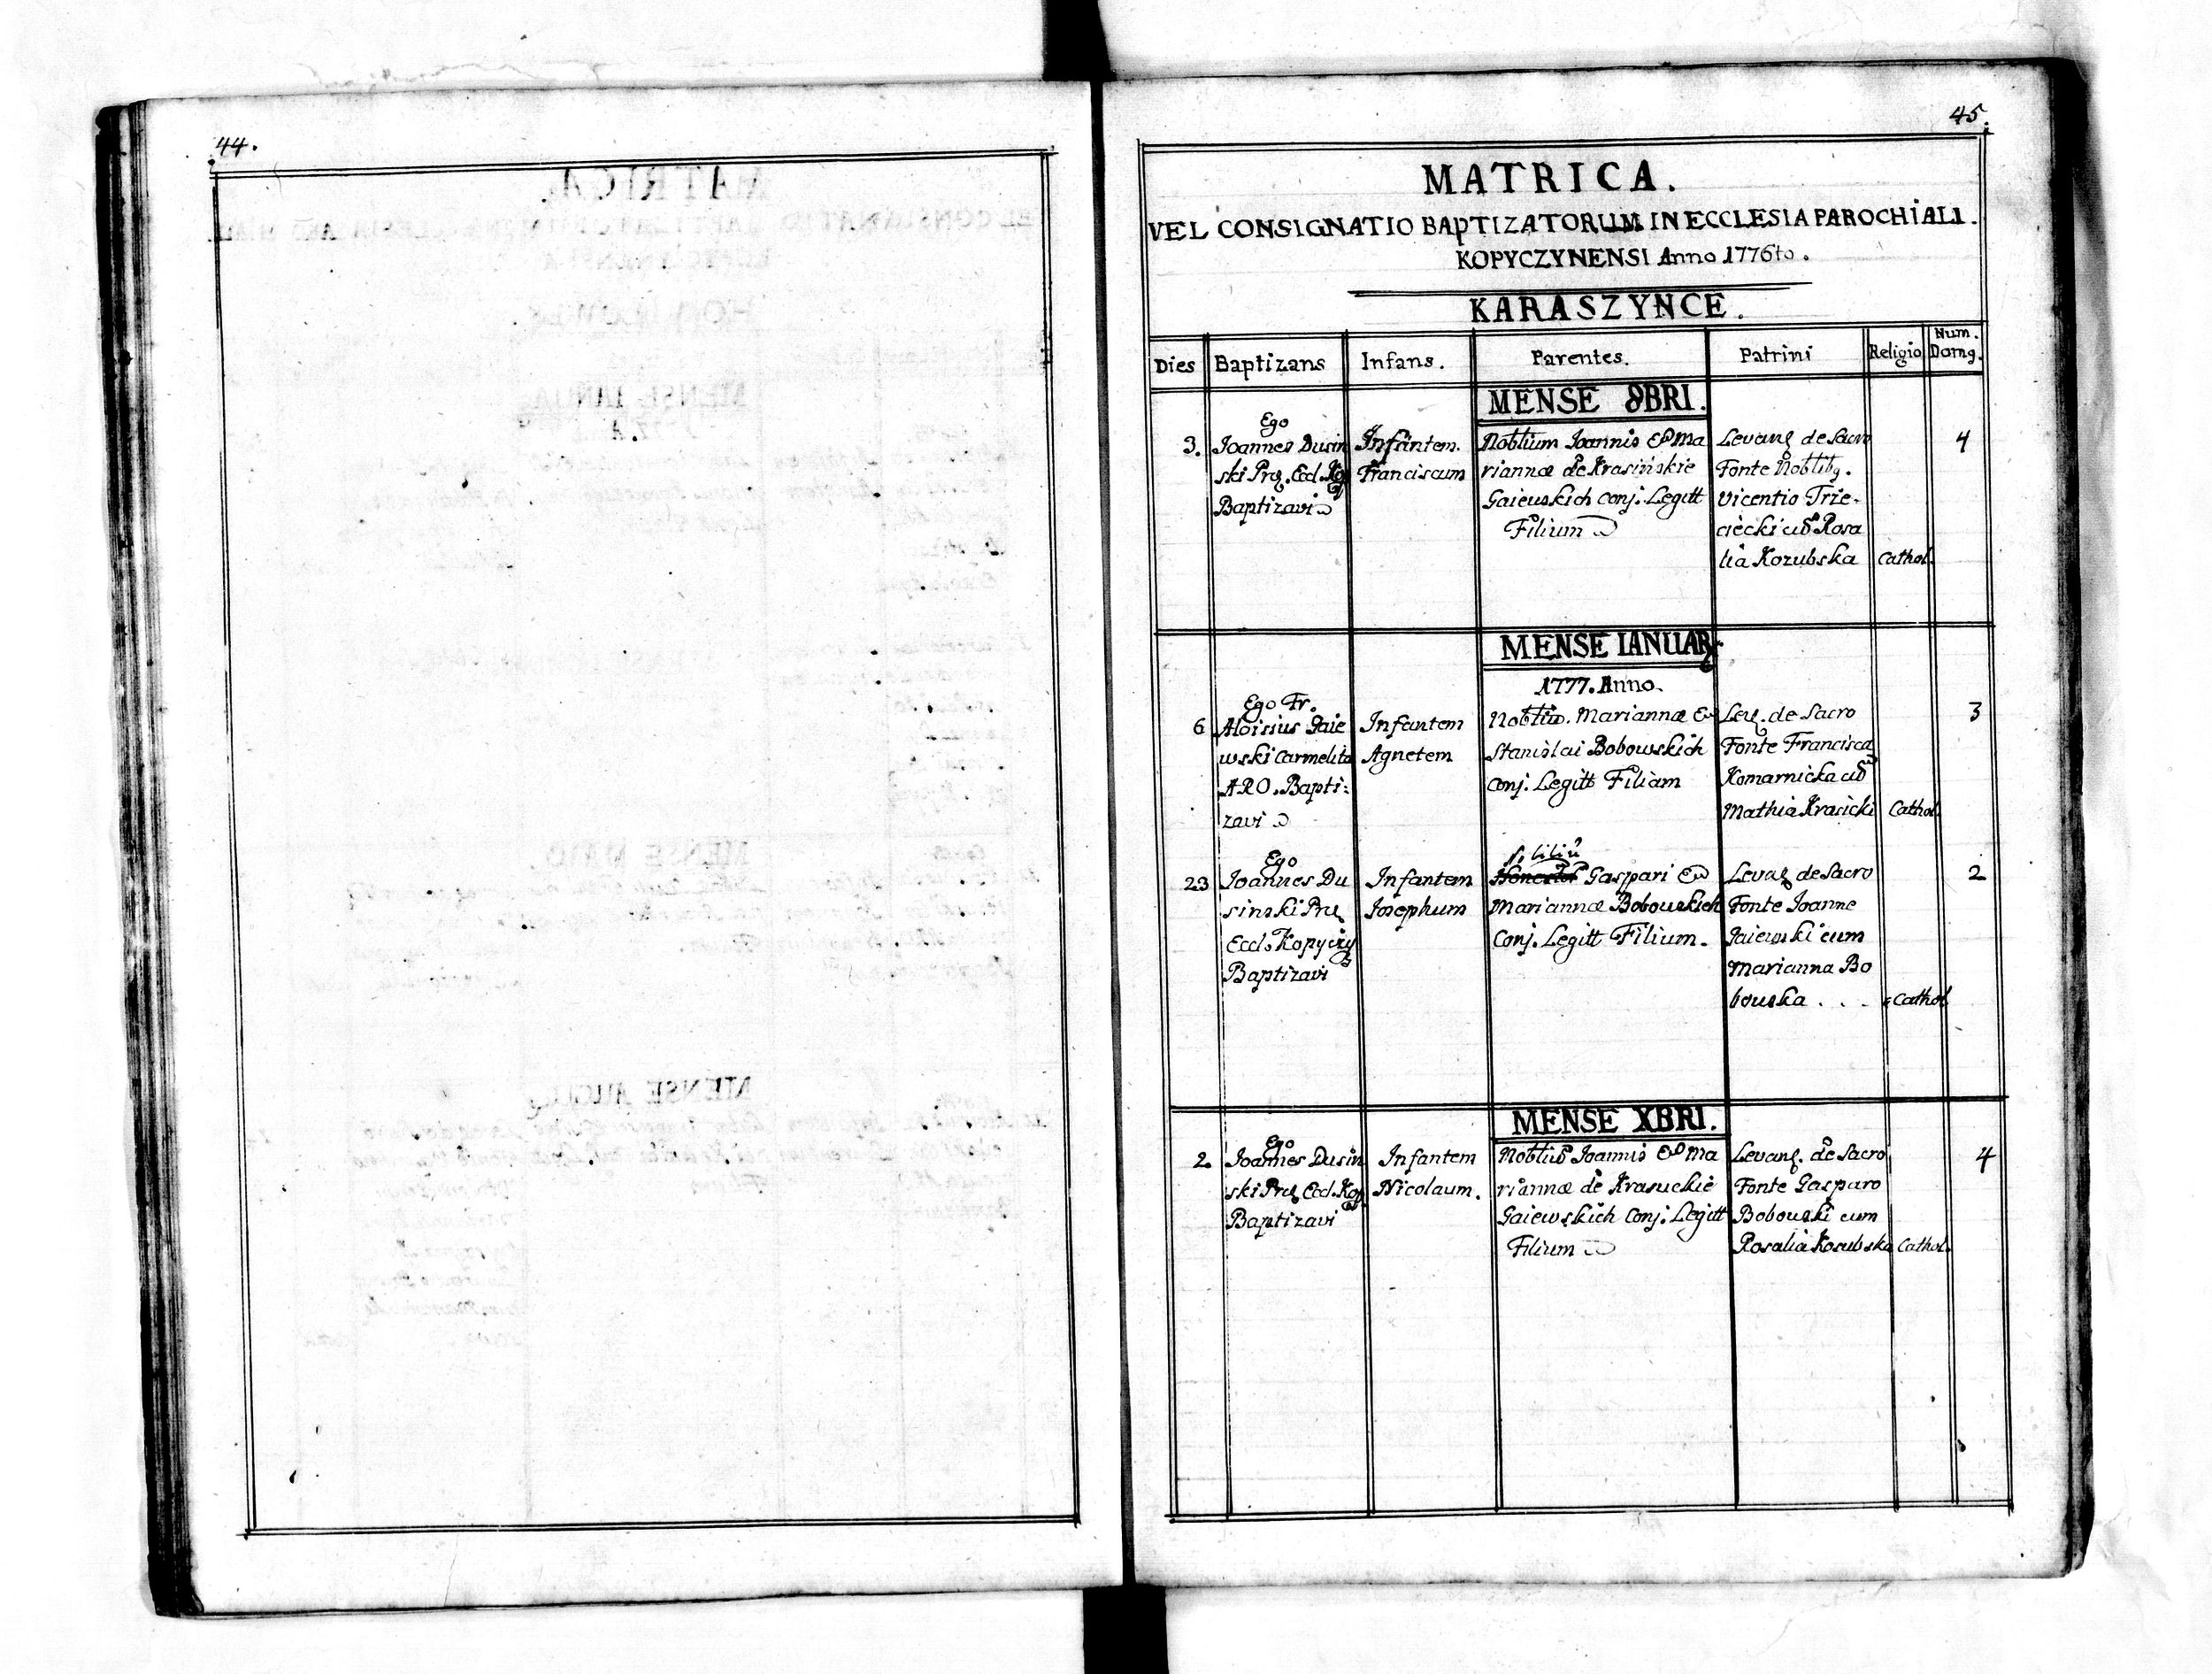 44.
45.
MATRICA.
VEL CONSIGNATIO BAPTIZATORUM IN ECCLESIA PAROCHIALI.
KOPYCZYNENSI Anno 1776to.
KARASZYNCE.
Dies Baptizans Infans. Parentes. Patrini Religio Num. Domg.
MENSE 8BRI.
3.
Ego
Joannes Dusin
ski Prę. Eccl. Kop
Baptizavi
Infantem.
Franciscum
Nobilium Joannis & Ma
riannæ de Krasińskie
Gaiewskich Conj. Legitt
Filium
Levanę de Sacro
Fonte Nobilibg.
Vicentio Trze-
ciecki cum Rosa
lia Kozubska
Cathol.
4
MENSE IANUAR
1777. Anno.
6
Ego Fr.
Aloisius Gaie
wski Carmelita
ARO. Bapti:
zavi
Infantem
Agnetem
Nobliu. Mariannæ &
Stanislai Bobowskich
Conj. Legitt Filiam
Leę. de Sacro
Fonte Francisca
Komarnicka cum
Mathia Krasicki
Cathol.
3
23
Ego
Joannes Du
sinski Prę
Eccl. Kopyczy
Baptizavi
Infantem
Josephum
Gaspari &
Mariannæ Bobowskich
Conj. Legitt Filium.
Levaę de Sacro
Fonte Joanne
Gaiewski cum
Marianna Bo
bowska . . .
Cathol
2
MENSE XBRI.
2.
Ego
Joannes Dusin
ski Prę Eccl. Kop
Baptizavi
Infantem
Nicolaum.
Nobliu Joannis & Ma
riannæ de Krasuckie
Gaiewskich Conj. Legitt
Filium
Levanę. de Sacro
Fonte Gasparo
Bobowski cum
Rosalia Kosubska
Cathol.
4